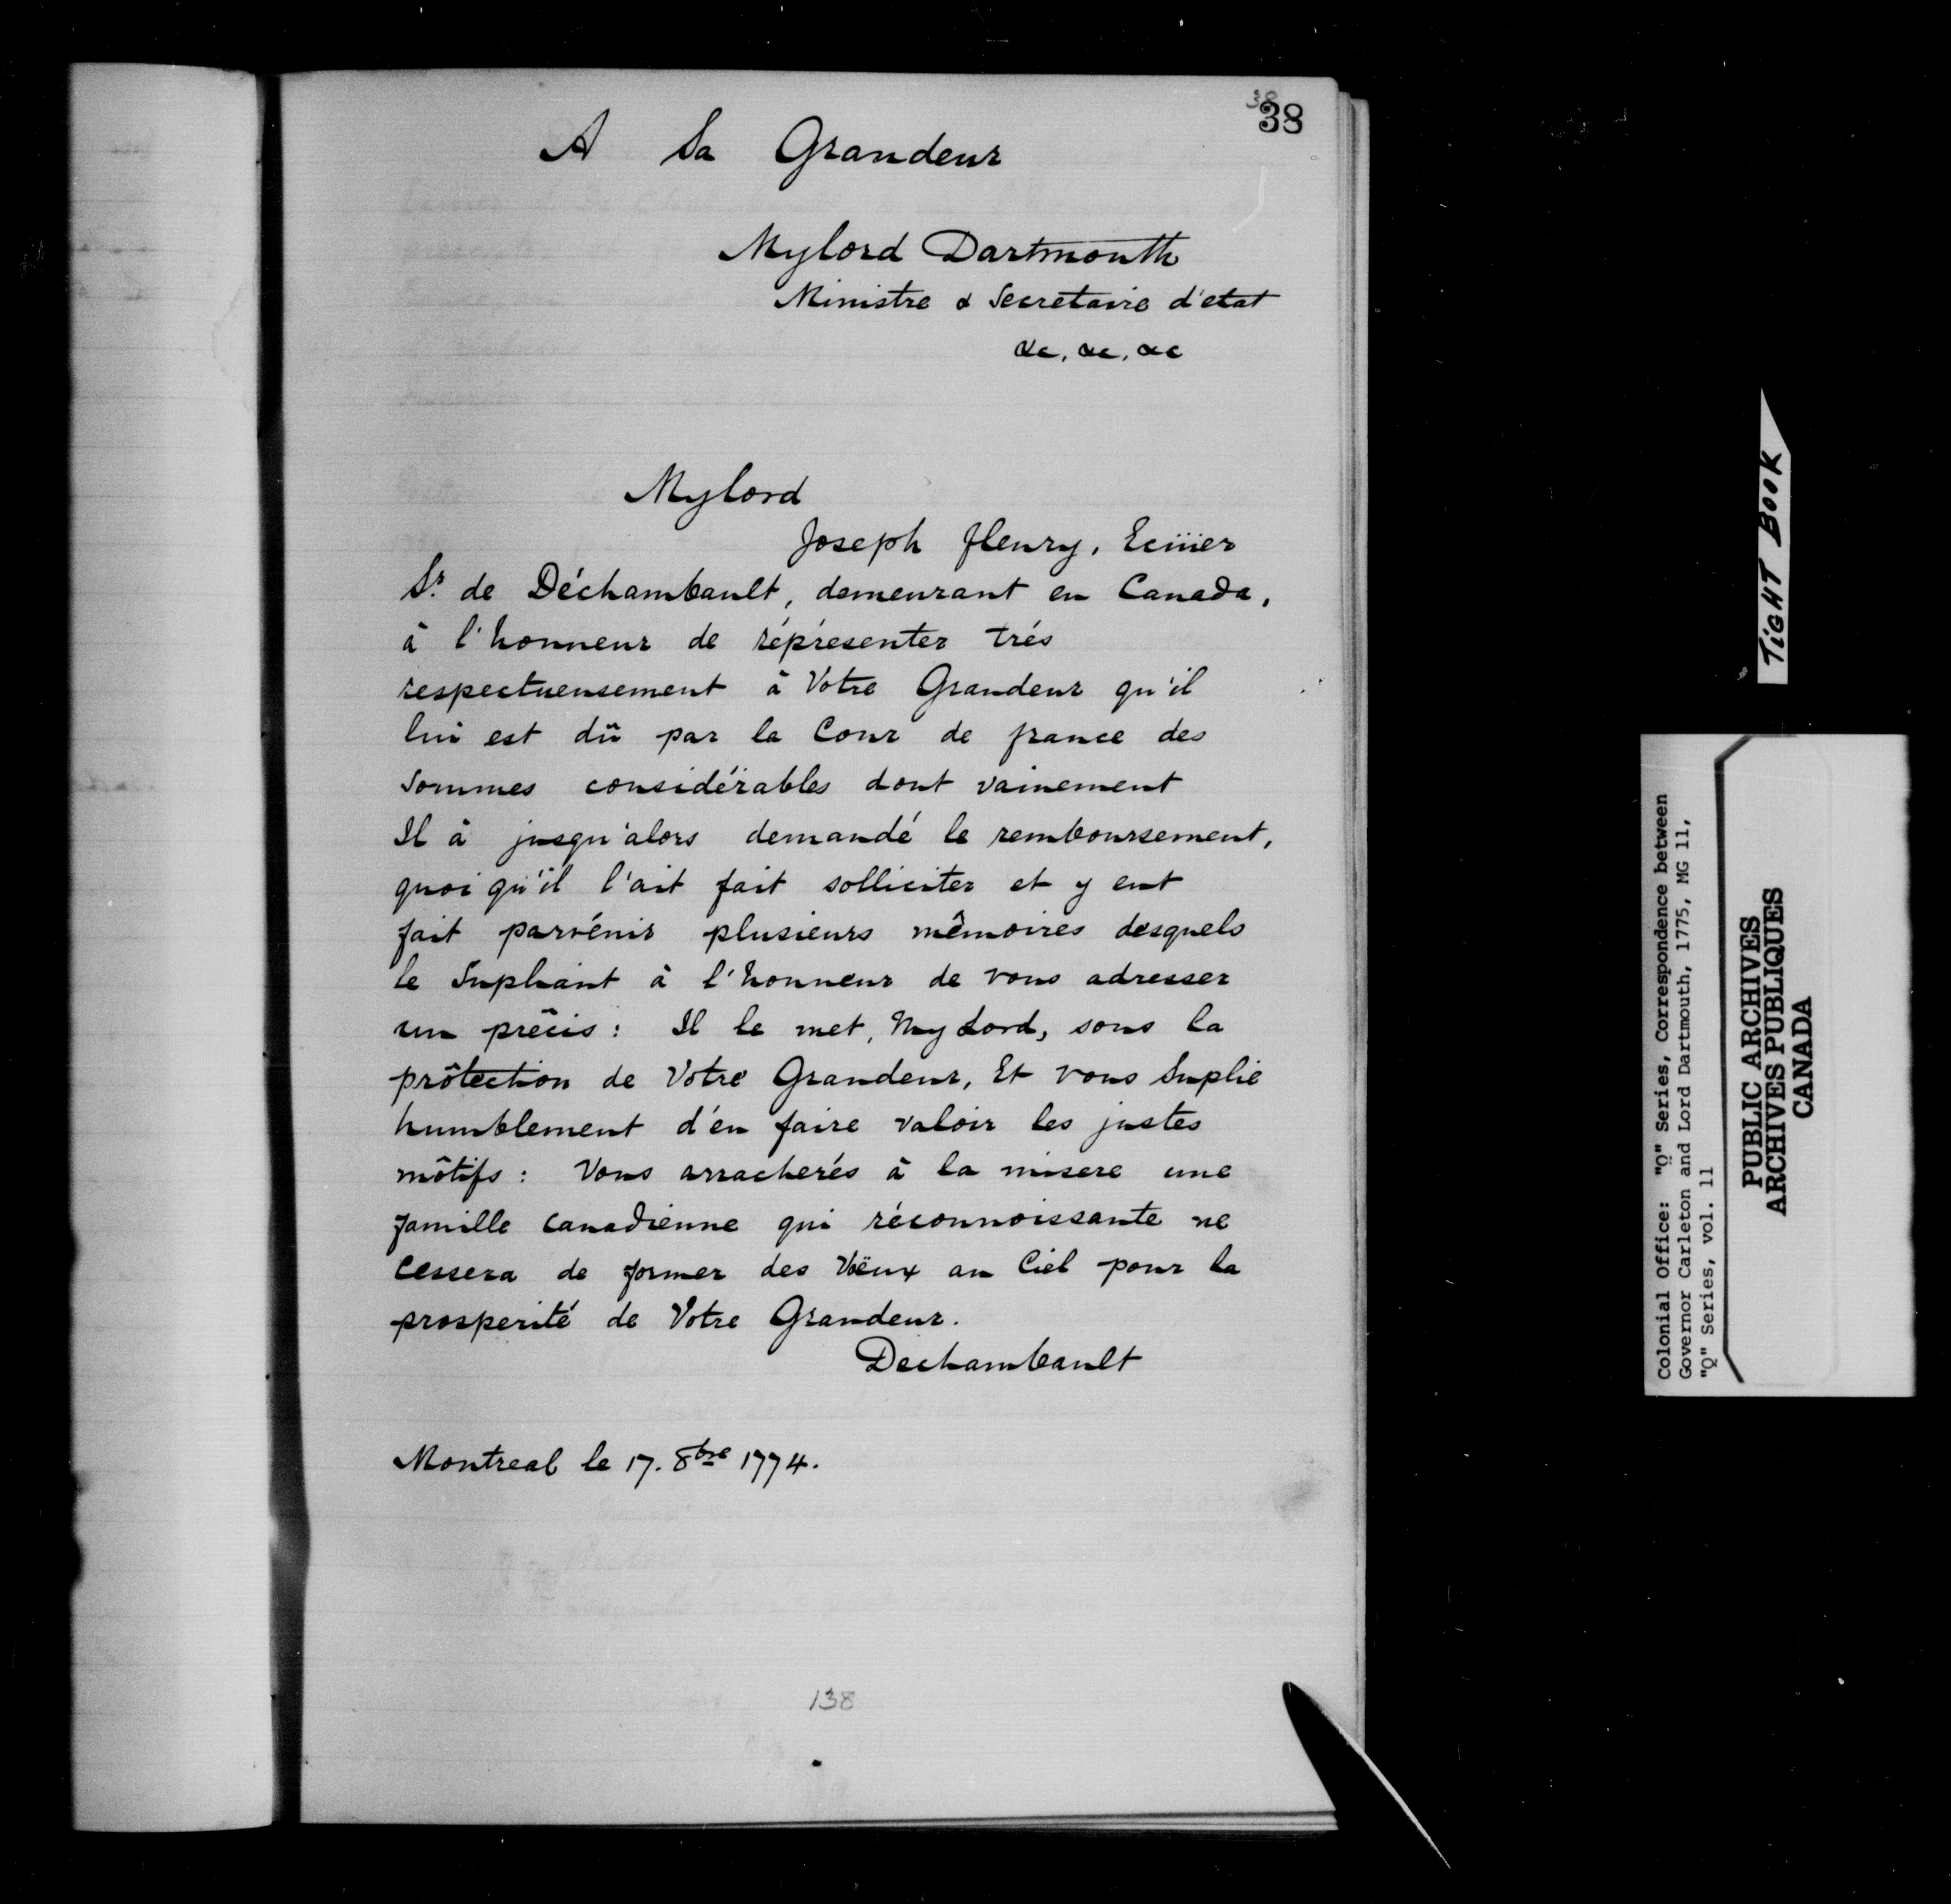 38
38
A Sa Grandeur
Mylord Dartmouth
Ministre & Secretaire d'etat
&c, &c, &c
Mylord
Joseph fleury, Ecüier
Sr. de Déchambault, demeurant en Canada,
à l'honneur de réprésenter trés
respectueusement à Votre Grandeur qu'il
lui est dû par la Cour de france des
Sommes considérables dont vainement
Il à jusqu'alors demandé le remboursement,
quoi qu'il l'ait fait solliciter et y eut
fait parvénir plusieurs mêmoires desquels
le Supliant à l'honneur de vous adresser
un précis : Il le met, My Lord, sous la
prôtection de Votre Grandeur, Et vous Suplie
humblement d'én faire valoir les justes
môtifs : Vous arracherés à la misere une
famille canadienne qui réconnoissante ne
Cessera de former des Vöeux au Ciel pour la
prosperité de Votre Grandeur.
Dechambault
Montreal le 17. 8bre 1774.
138
TIGHT BOOK
Colonial Office: "Q" Series, Correspondence between
Governor Carleton and Lord Dartmouth, 1775, MG 11,
"Q" Series, vol. 11
PUBLIC ARCHIVES
ARCHIVES PUBLIQUES
CANADA